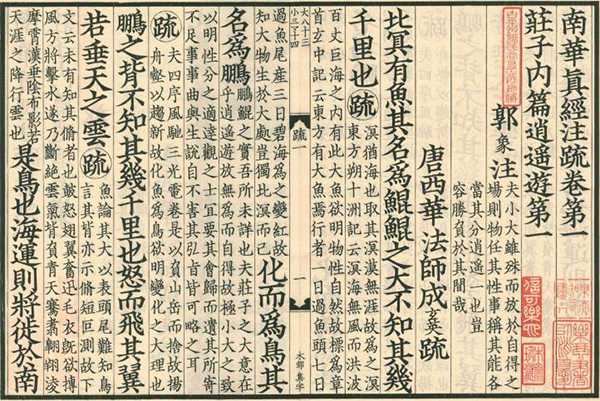 南華真經注疏卷第一
莊子内篇逍遥遊第一
郭象注
夫小大雖殊而放於自得之
場則物任其性事稱其能各
當其分逍遥一也豈
容勝負於其間哉
唐西華法師成玄英疏
北冥有魚其名為鯤鯤之大不知其幾
千里也疏
溟猶海也取其溟漠無涯故為之溟
東方朔十洲記云溟海無風而洪波
百丈巨海之内有此大魚欲明物性自然故標為章
首玄中記云東方有大魚焉行者一日過魚頭七日
過魚尾產三日碧海為之變紅故
知大物生於大處豈獨北溟而已
化而為鳥其
疏一
一
名為鵬
鵬鯤之實吾所未詳也夫莊子之大意在
乎逍遥遊放無為而自得故極小大之致
以明性分之適達觀之士宜要其會歸而遺其所寄
不足事事曲與生說自不害其弘旨皆可略之耳
疏
夫四序風馳三光電卷是以負山岳而捨故揚
舟壑以趨新故化魚為鳥欲明變化之大理也
鵬之背不知其幾千里也怒而飛其翼
若垂天之雲疏
魚論其大以表頭尾難知鳥
言其背亦示脩短叵測故下
文云未有知其脩者也皷怒翅翼奮迅毛衣既欲摶
風方將擊水遂乃斷絶雲氣背負青天騫翥翱翔淩
摩霄漢垂陰布影若
天涯之降行雲也
是鳥也海運則將徙於南